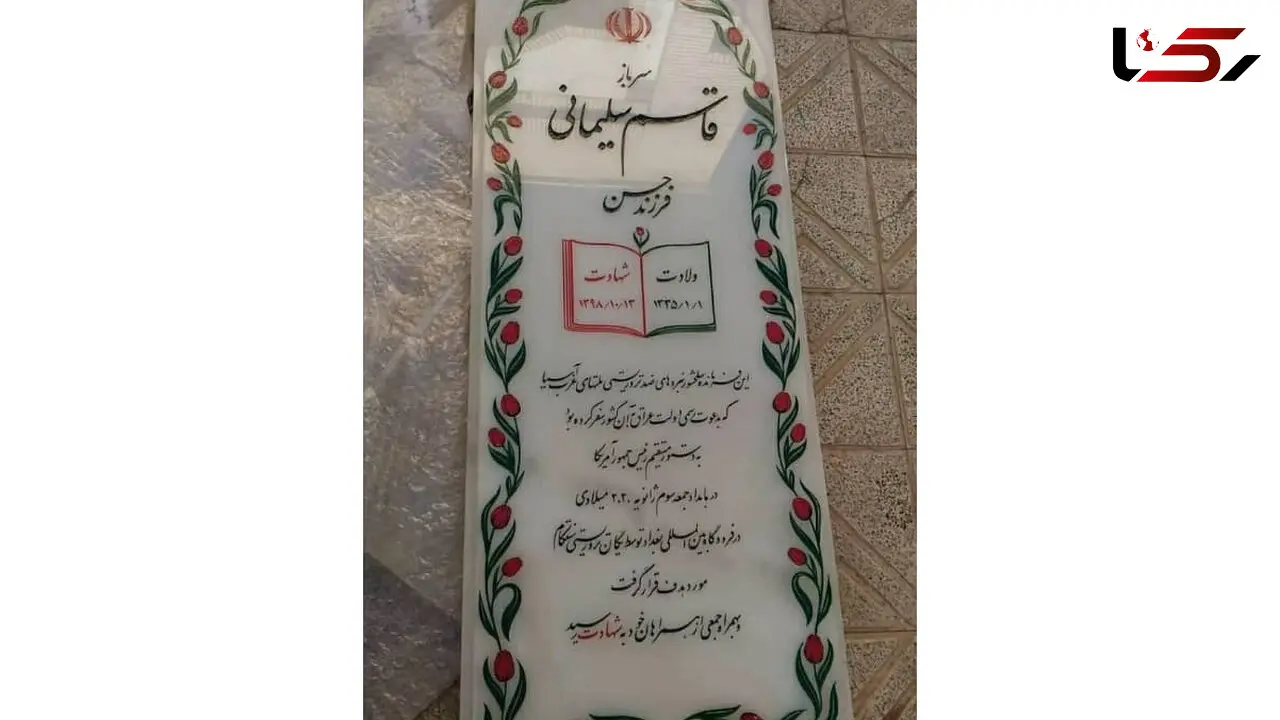 رکنا
سرباز
قاسم سلیمانی
فرزند حسن
ولادت
۱۳۳۵/۱/۱
شهادت
۱۳۹۸/۱۰/۱۳
این فرمانده سلحشور نبردهای ضد تروریستی ملتهای غرب آسیا
که به دعوت رسمی دولت عراق به آن کشور سفر کرده بود
به دستور مستقیم رئیس جمهور آمریکا
در بامداد جمعه سوم ژانویه ۲۰۲۰ میلادی
در فرودگاه بین المللی بغداد توسط یگان تروریستی سنتکام
مورد هدف قرار گرفت
و بهمراه جمعی از همراهان خود به شهادت رسید